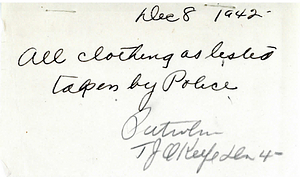 Dec 8 1942
All clothing as listed
taken by Police
Patrolm
T J O'Keefe Div 4